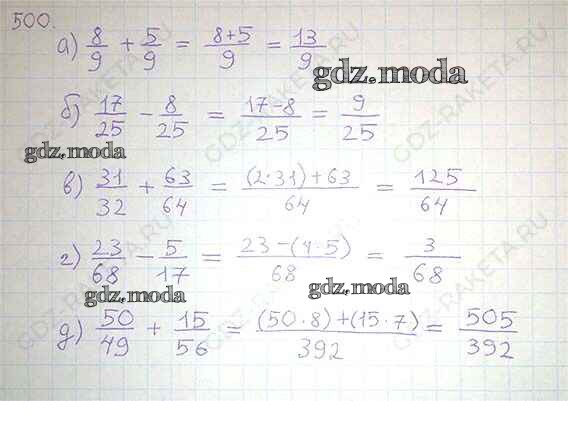 500.
а) 8/9 + 5/9 = (8+5)/9 = 13/9
gdz.moda
б) 17/25 − 8/25 = (17−8)/25 = 9/25
gdz.moda
в) 31/32 + 63/64 = ((2·31)+63)/64 = 125/64
г) 23/68 − 5/17 = (23−(4·5))/68 = 3/68
gdz.moda gdz.moda
д) 50/49 + 15/56 = ((50·8)+(15·7))/392 = 505/392
GDZ-RAKETA.RU
GDZ-RAKETA.RU
GDZ-RAKETA.RU
GDZ-RAKETA.RU
GDZ-RAKETA.RU
GDZ-RAKETA.RU